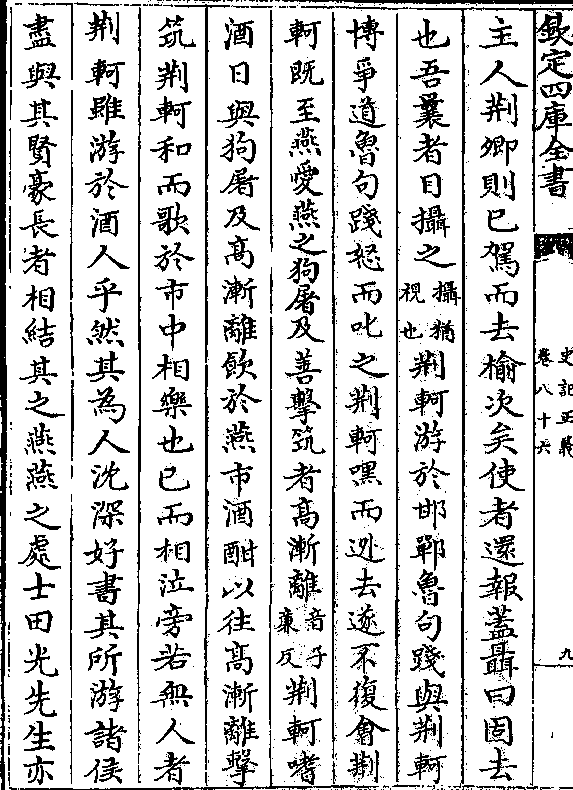 欽定四庫全書
史記正義
卷八十六
九
主人荆卿則已駕而去榆次矣使者還報蓋聶曰固去
也吾曩者目攝之攝猶視也荆軻游於邯鄲魯句踐與荆軻
博爭道魯句踐怒而叱之荆軻嘿而逃去遂不復會荆
軻既至燕愛燕之狗屠及善擊筑者高漸離音子亷反荆軻嗜
酒日與狗屠及高漸離飲於燕市酒酣以往高漸離擊
筑荆軻和而歌於市中相樂也已而相泣旁若無人者
荆軻雖游於酒人乎然其為人沈深好書其所游諸侯
盡與其賢豪長者相結其之燕燕之處士田光先生亦